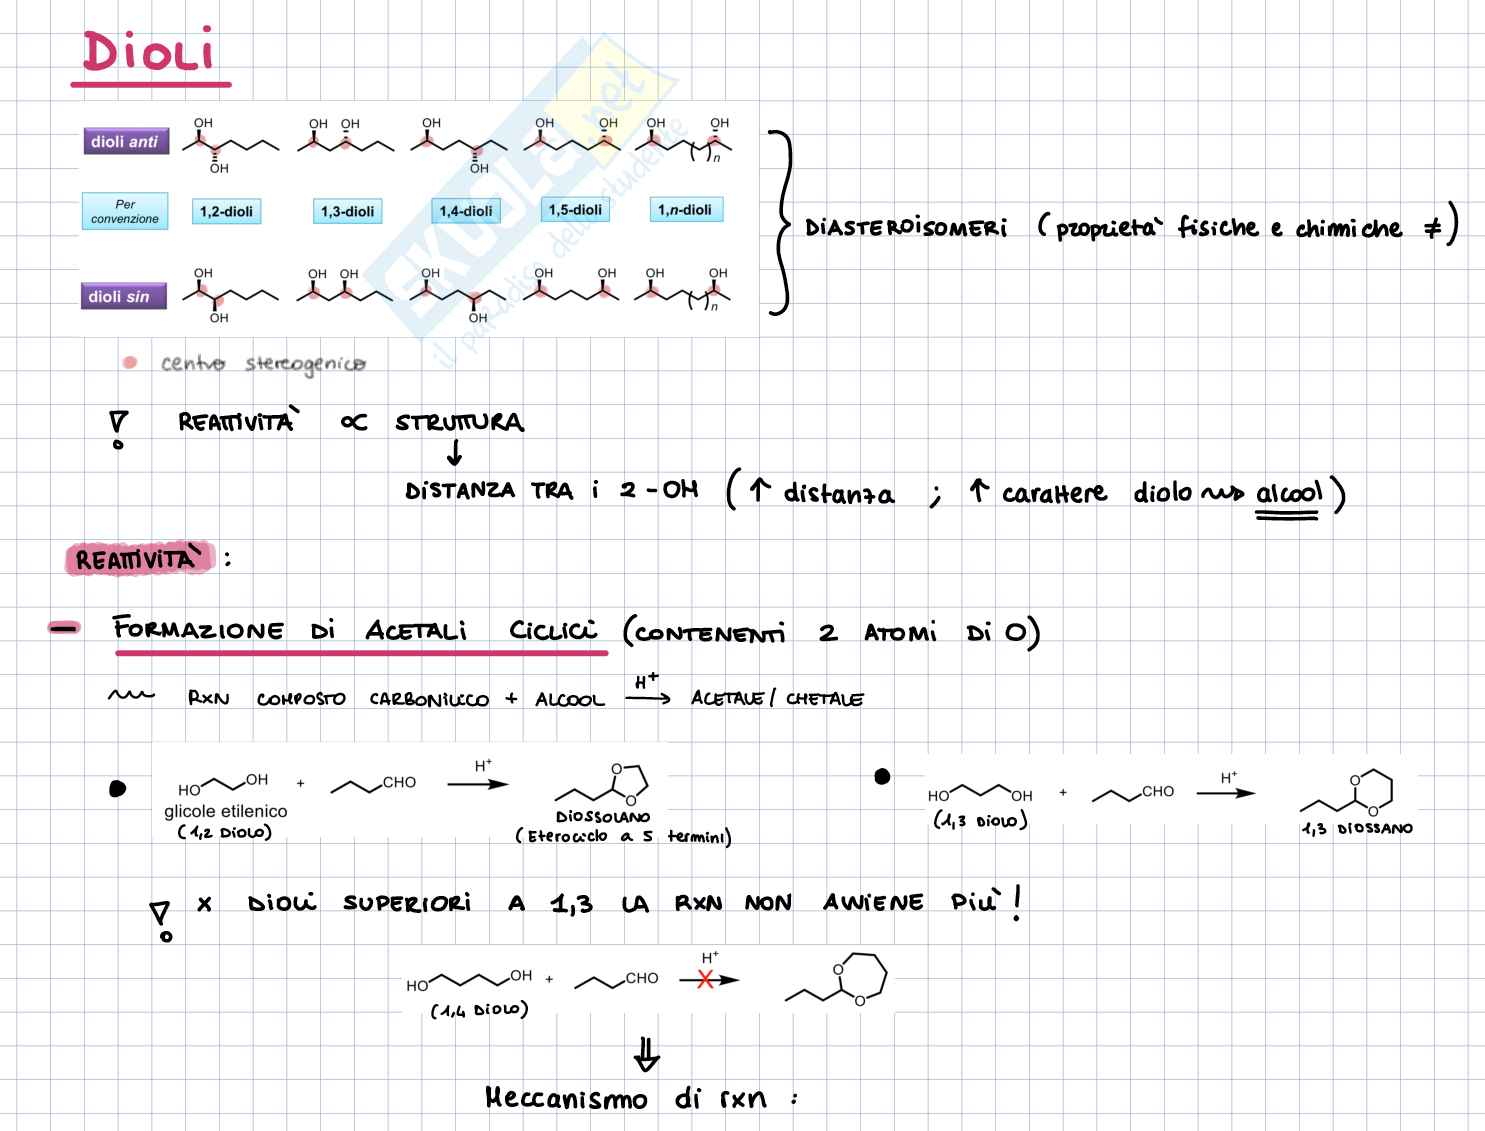 DIOLI
OH OH OH OH OH OH OH OH
dioli anti
n
OH OH
Per convenzione 1,2-dioli 1,3-dioli 1,4-dioli 1,5-dioli 1,n-dioli
DIASTEROISOMERI (proprietà fisiche e chimiche ≠)
OH OH OH OH OH OH OH OH
dioli sin
n
OH OH
SKUOLA.net
il paradiso dello studente
centro stereogenico
! REATTIVITÀ ∝ STRUTTURA
↓
DISTANZA TRA i 2 -OH (↑ distanza ; ↑ carattere diolo ⇝ alcool)
REATTIVITÀ :
– FORMAZIONE DI ACETALI CICLICI (CONTENENTI 2 ATOMI DI O)
H+
RXN COMPOSTO CARBONILICO + ALCOOL → ACETALE / CHETALE
• HO OH + CHO H+ O O
glicole etilenico
(1,2 DIOLO)
DIOSSOLANO
(Eterociclo a 5 termini)
• HO OH + CHO H+ O O
(1,3 DIOLO)
1,3 DIOSSANO
! X DIOLI SUPERIORI A 1,3 LA RXN NON AVVIENE PIÙ!
HO OH + CHO H+ X O O
(1,4 DIOLO)
⇓
Meccanismo di rxn :